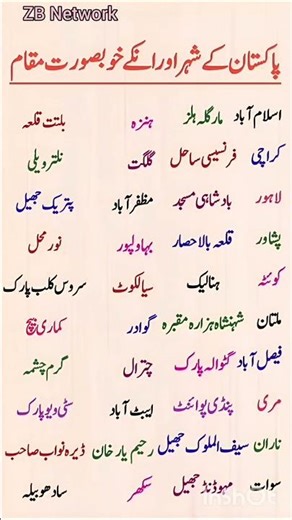 ZB Network
پاکستان کے شہر اور انکے خوبصورت مقام
اسلام آباد مارگلہ ہلز ہنزہ بلتت قلعہ
کراچی فرنسیسی ساحل گلگت نلتر ویلی
لاہور بادشاہی مسجد مظفر آباد پتریک جھیل
پشاور قلعہ بالا حصار بہاولپور نور محل
کوئٹہ ہنالیک سیالکوٹ سروس کلب پارک
ملتان شہنشاہ ہزارہ مقبرہ گوادر کماری بیچ
فیصل آباد گٹوالہ پارک چترال گرم چشمہ
مری پنڈی پوائنٹ ایبٹ آباد سٹی ویو پارک
ناران سیف الملوک جھیل رحیم یار خان ڈیرہ نواب صاحب
سوات مہوڈنڈ جھیل سکھر سادھو بیلہ